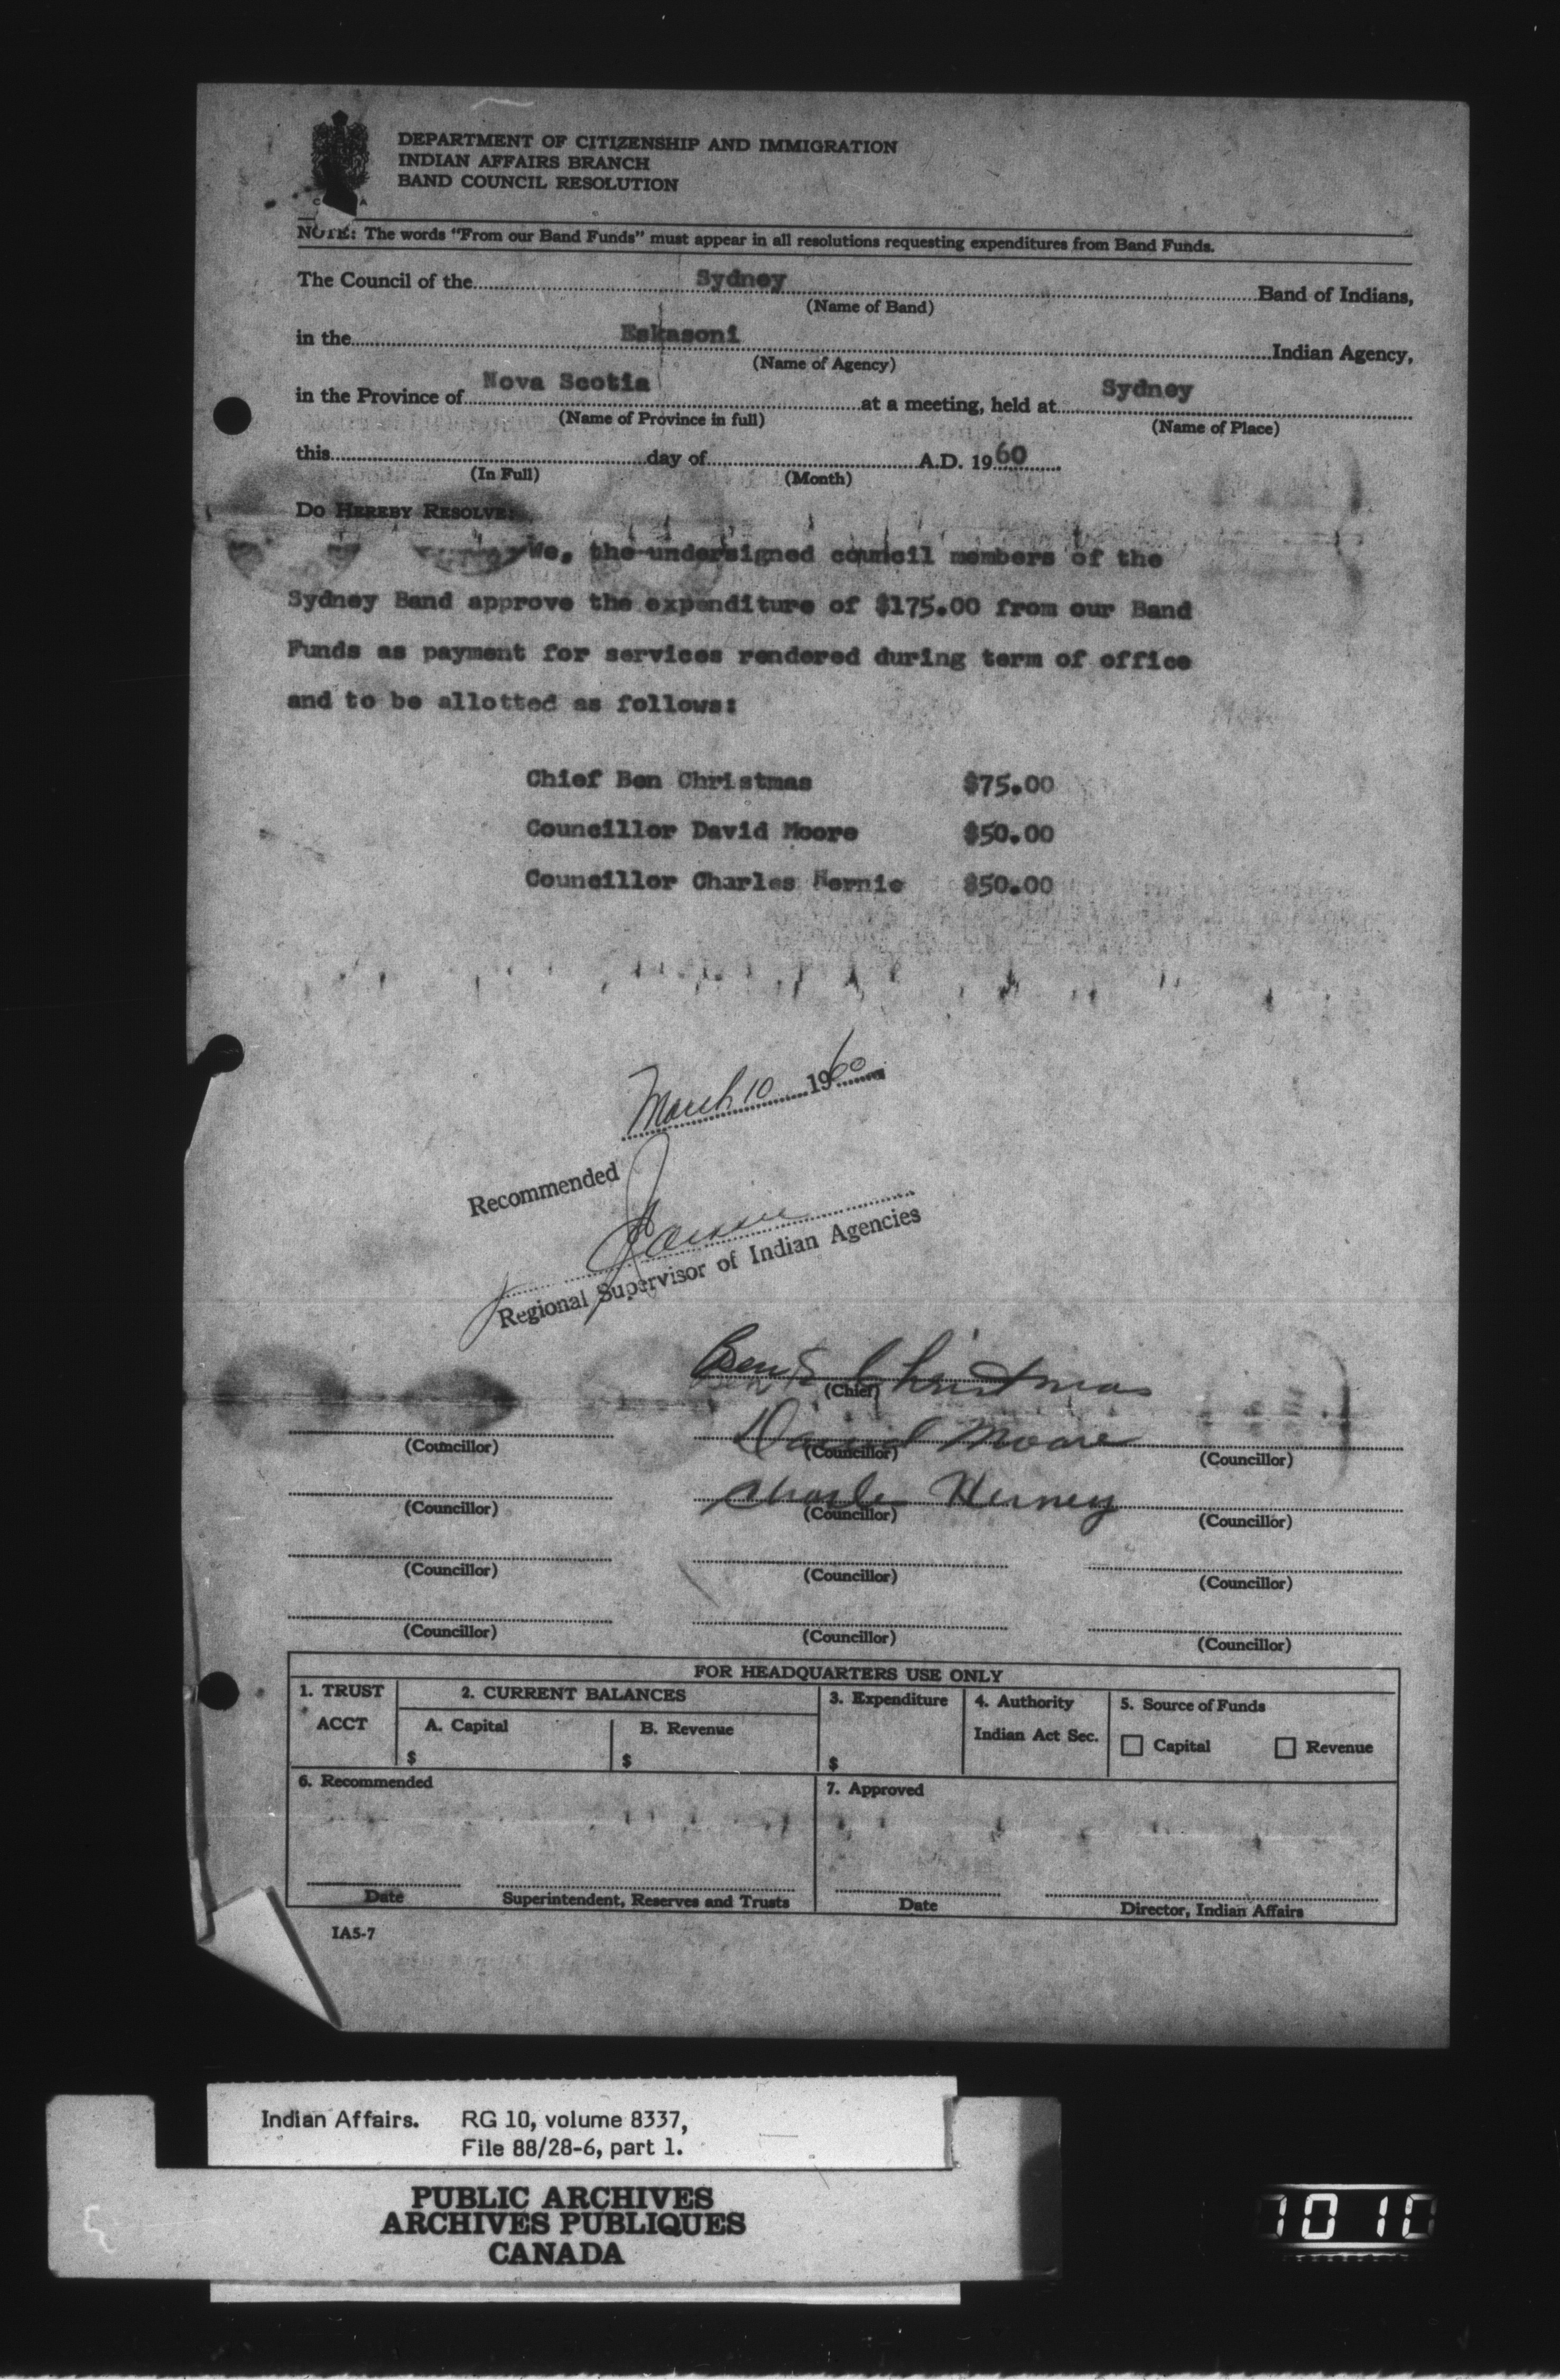 DEPARTMENT OF CITIZENSHIP AND IMMIGRATION
INDIAN AFFAIRS BRANCH
BAND COUNCIL RESOLUTION
C A
NOTE: The words "From our Band Funds" must appear in all resolutions requesting expenditures from Band Funds.
The Council of the Sydney Band of Indians,
(Name of Band)
in the Eskasoni Indian Agency,
(Name of Agency)
in the Province of Nova Scotia at a meeting, held at Sydney
(Name of Province in full) (Name of Place)
this day of A.D. 1960
(In Full) (Month)
DO HEREBY RESOLVE:
We, the undersigned council members of the
Sydney Band approve the expenditure of $175.00 from our Band
Funds as payment for services rendered during term of office
and to be allotted as follows:
Chief Ben Christmas $75.00
Councillor David Moore $50.00
Councillor Charles Hernie $50.00
March 10 1960
Recommended
Regional Supervisor of Indian Agencies
Ben E Christmas
(Chief)
David Moore
(Councillor) (Councillor) (Councillor)
Charles Herney
(Councillor) (Councillor) (Councillor)
(Councillor) (Councillor) (Councillor)
(Councillor) (Councillor) (Councillor)
FOR HEADQUARTERS USE ONLY
1. TRUST 2. CURRENT BALANCES 3. Expenditure 4. Authority 5. Source of Funds
ACCT A. Capital B. Revenue Indian Act Sec. Capital Revenue
$ $ $
6. Recommended 7. Approved
Date Superintendent, Reserves and Trusts Date Director, Indian Affairs
IA5-7
Indian Affairs. RG 10, volume 8337,
File 88/28-6, part 1.
PUBLIC ARCHIVES
ARCHIVES PUBLIQUES
CANADA
1010